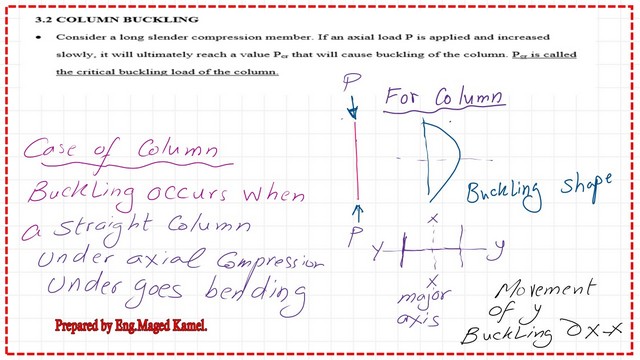 3.2 COLUMN BUCKLING
• Consider a long slender compression member. If an axial load P is applied and increased
slowly, it will ultimately reach a value Pcr that will cause buckling of the column. Pcr is called
the critical buckling load of the column.
P
For Column
Case of Column
Buckling occurs when
a straight Column
Under axial Compression
Under goes bending
Buckling Shape
P
x
y y
x
major
axis
Movement
of y
Buckling x-x
Prepared by Eng.Maged Kamel.